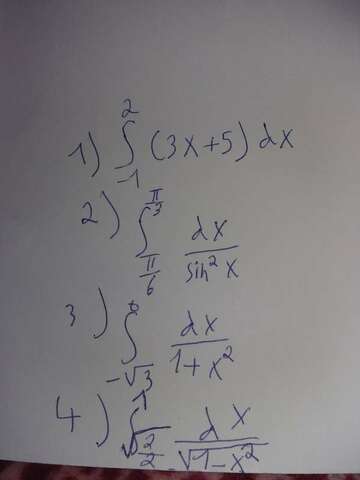 1) ∫_{-1}^{2} (3x+5) dx
2) ∫_{π/6}^{π/3} dx / sin² x
3) ∫_{-√3}^{0} dx / (1+x²)
4) ∫_{√2/2}^{1} dx / √(1-x²)